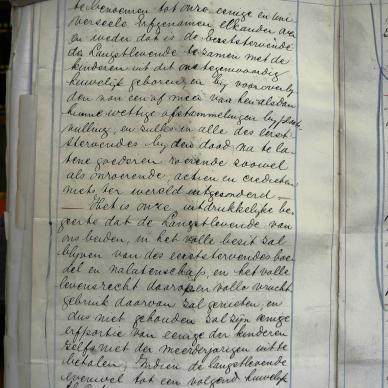 te benoemen tot onze eenige en uni
verseele erfgenamen elkander over
en weder dat is de eerststervende
de Langstlevende te zamen met de
kinderen uit dit ons tegenwoordig
huwelijk geboren en bij vooroverlij
den van een of meer van hen alsdan
hunne wettige afstammelingen bij plaats
vulling, en zulks in alle des eerst
stervendes bij dien dood na te la
tene goederen roerende zoowel
als onroerende, actien en credieten
niets ter wereld uitgezonderd —
Het is onze uitdrukkelijke be
geerte dat de Langstlevende van
ons beiden, in het volle bezit zal
blijven van des eerststervendes boe
del en nalatenschap, en het volle
levensrecht daarop en volle vrucht
gebruik daarvan zal genieten, en
dus niet gehouden zal zijn eenige
erfportie van eenige der kinderen
zelfs niet der meerderjarigen uit te
betalen; Indien de langstlevende
evenwel tot een volgend huwelijk